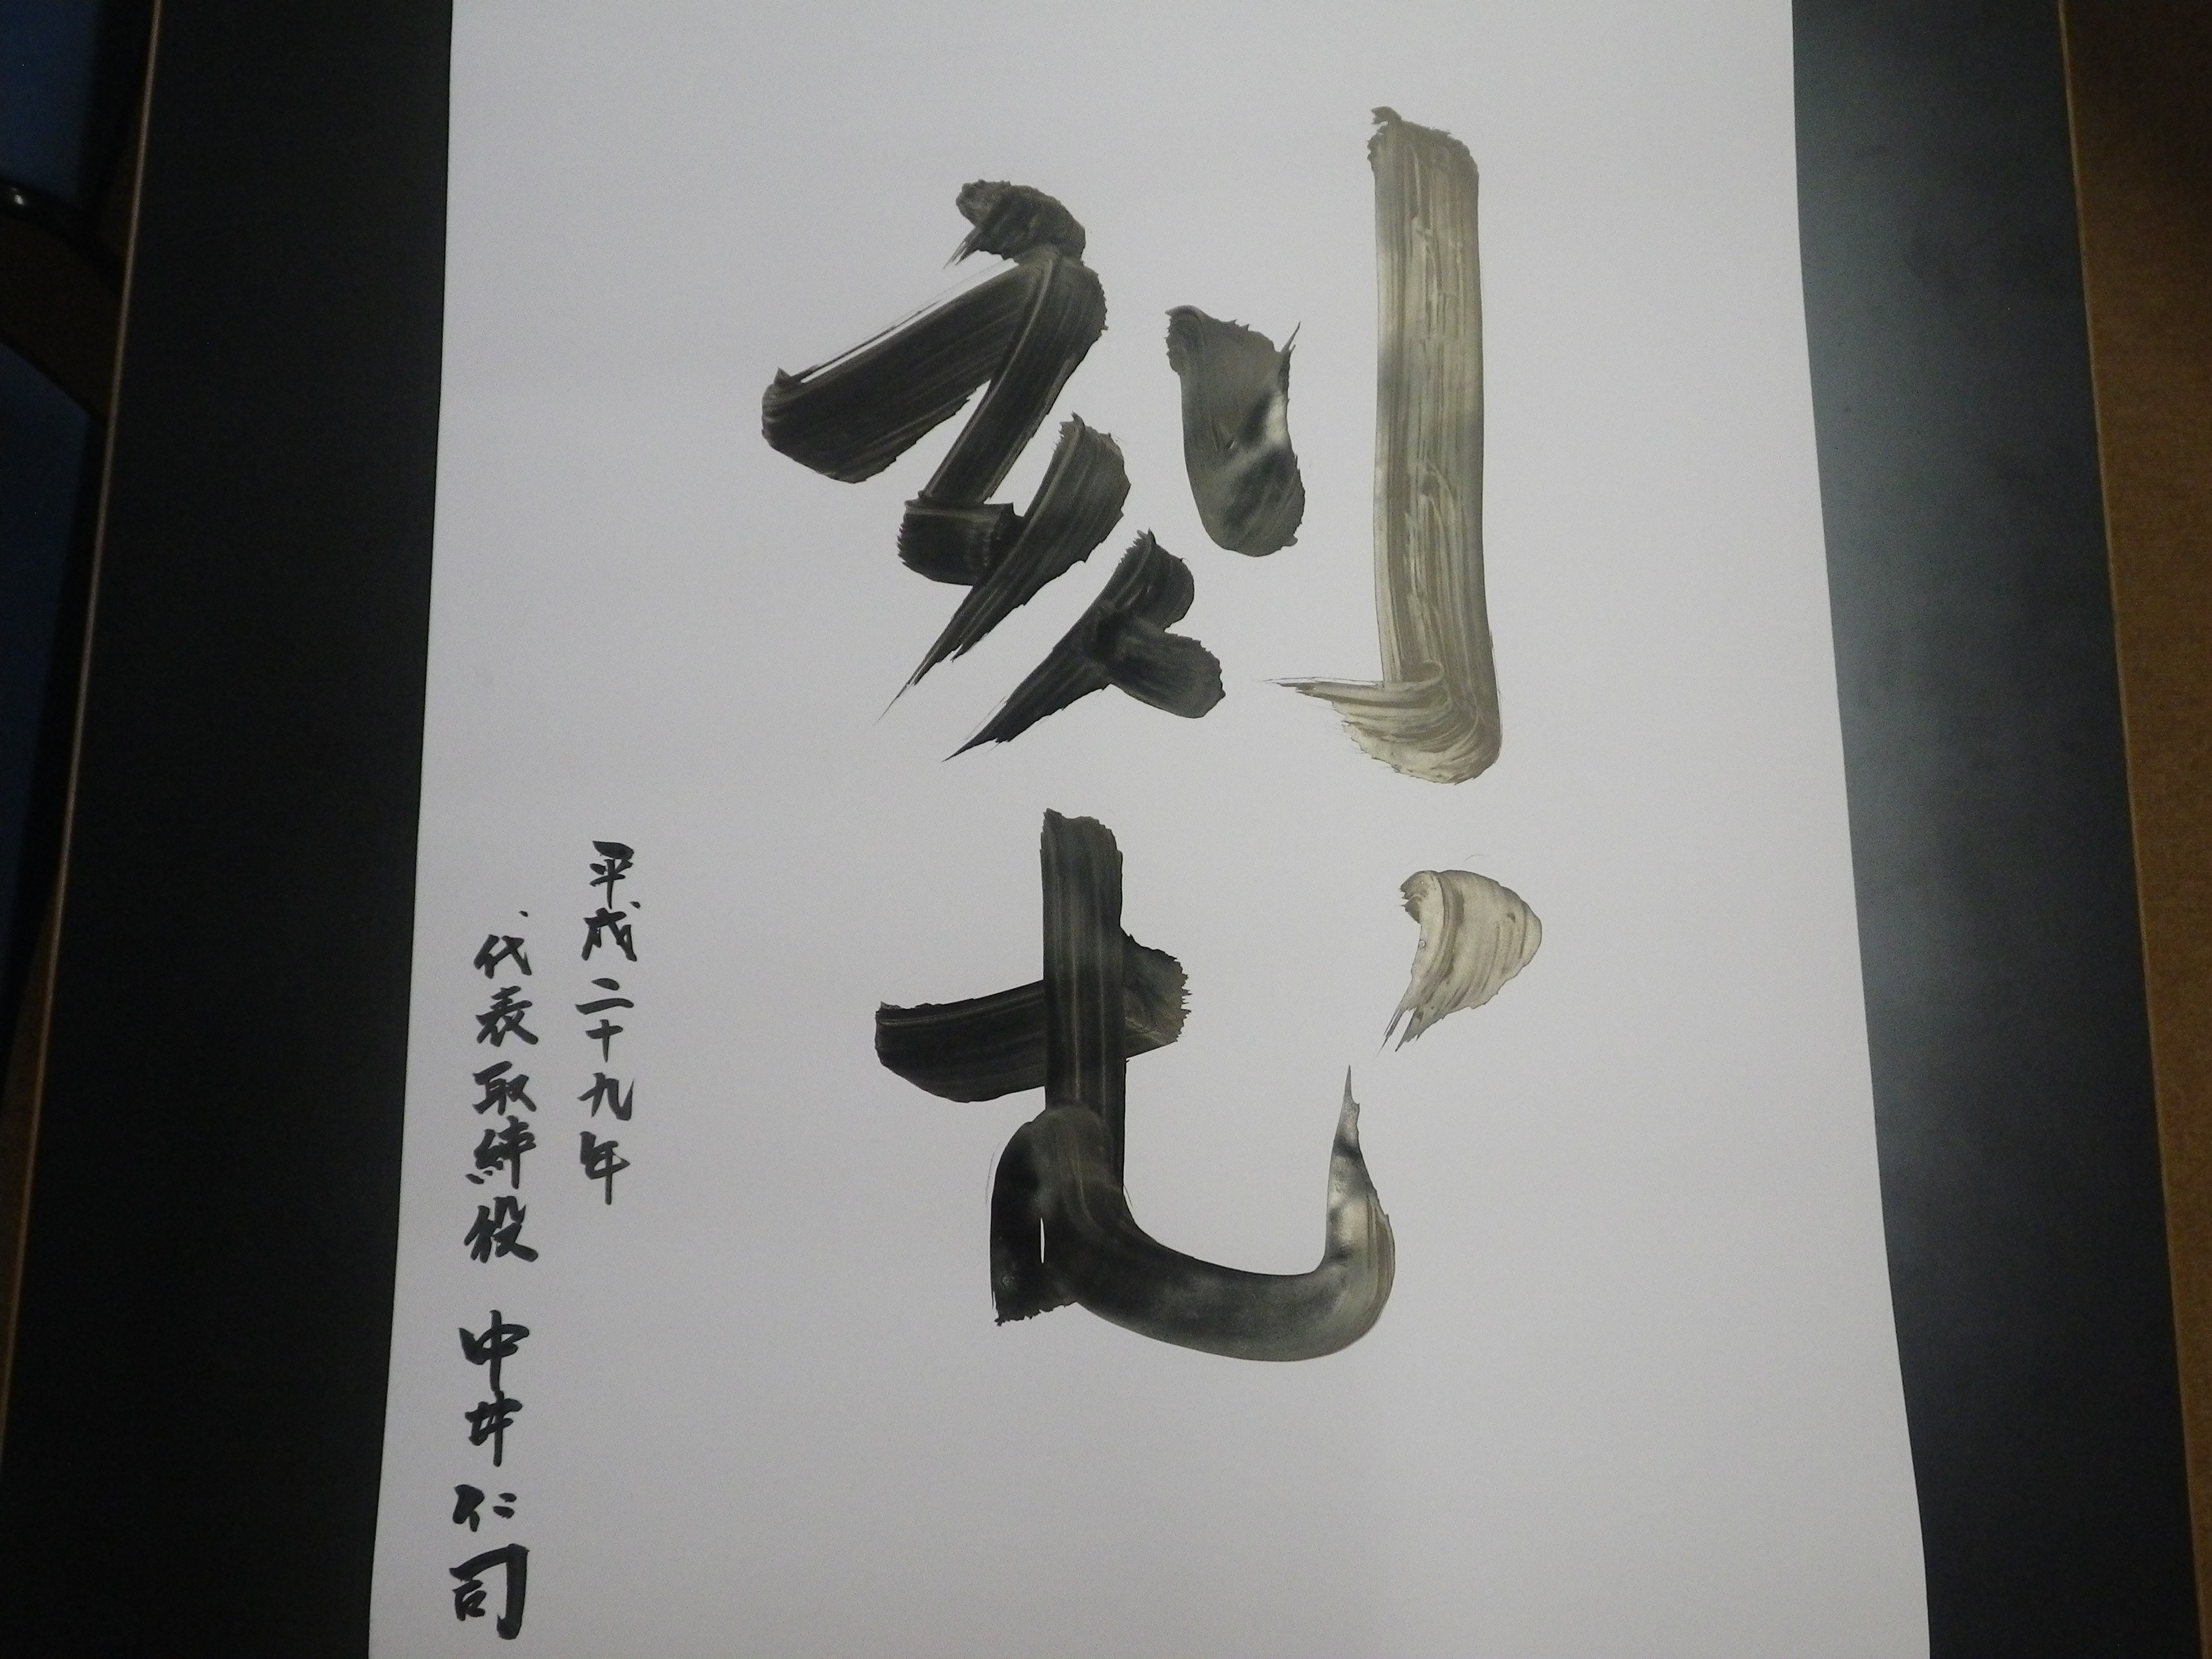 刻む
平成二十九年
代表取絆役 中井仁司